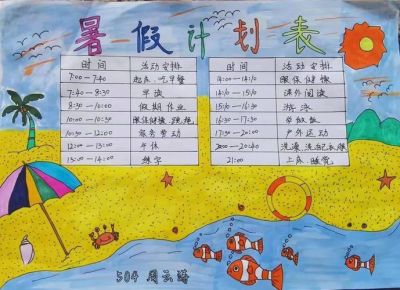 暑假计划表
时间 活动安排
7:00-7:40 起床、吃早餐
7:40-8:30 早读
8:30-10:00 假期作业
10:00-10:30 眼保健操、跳绳
10:30-12:00 家务劳动
12:00-13:00 午休
13:00-14:00 练字
时间 活动安排
14:00-14:10 眼保健操
14:10-15:10 课外阅读
15:10-16:30 游泳
16:30-17:30
17:30-20:00 户外运动
20:00-20:40 洗澡、洗自己衣服
21:00 上床睡觉
504 周云